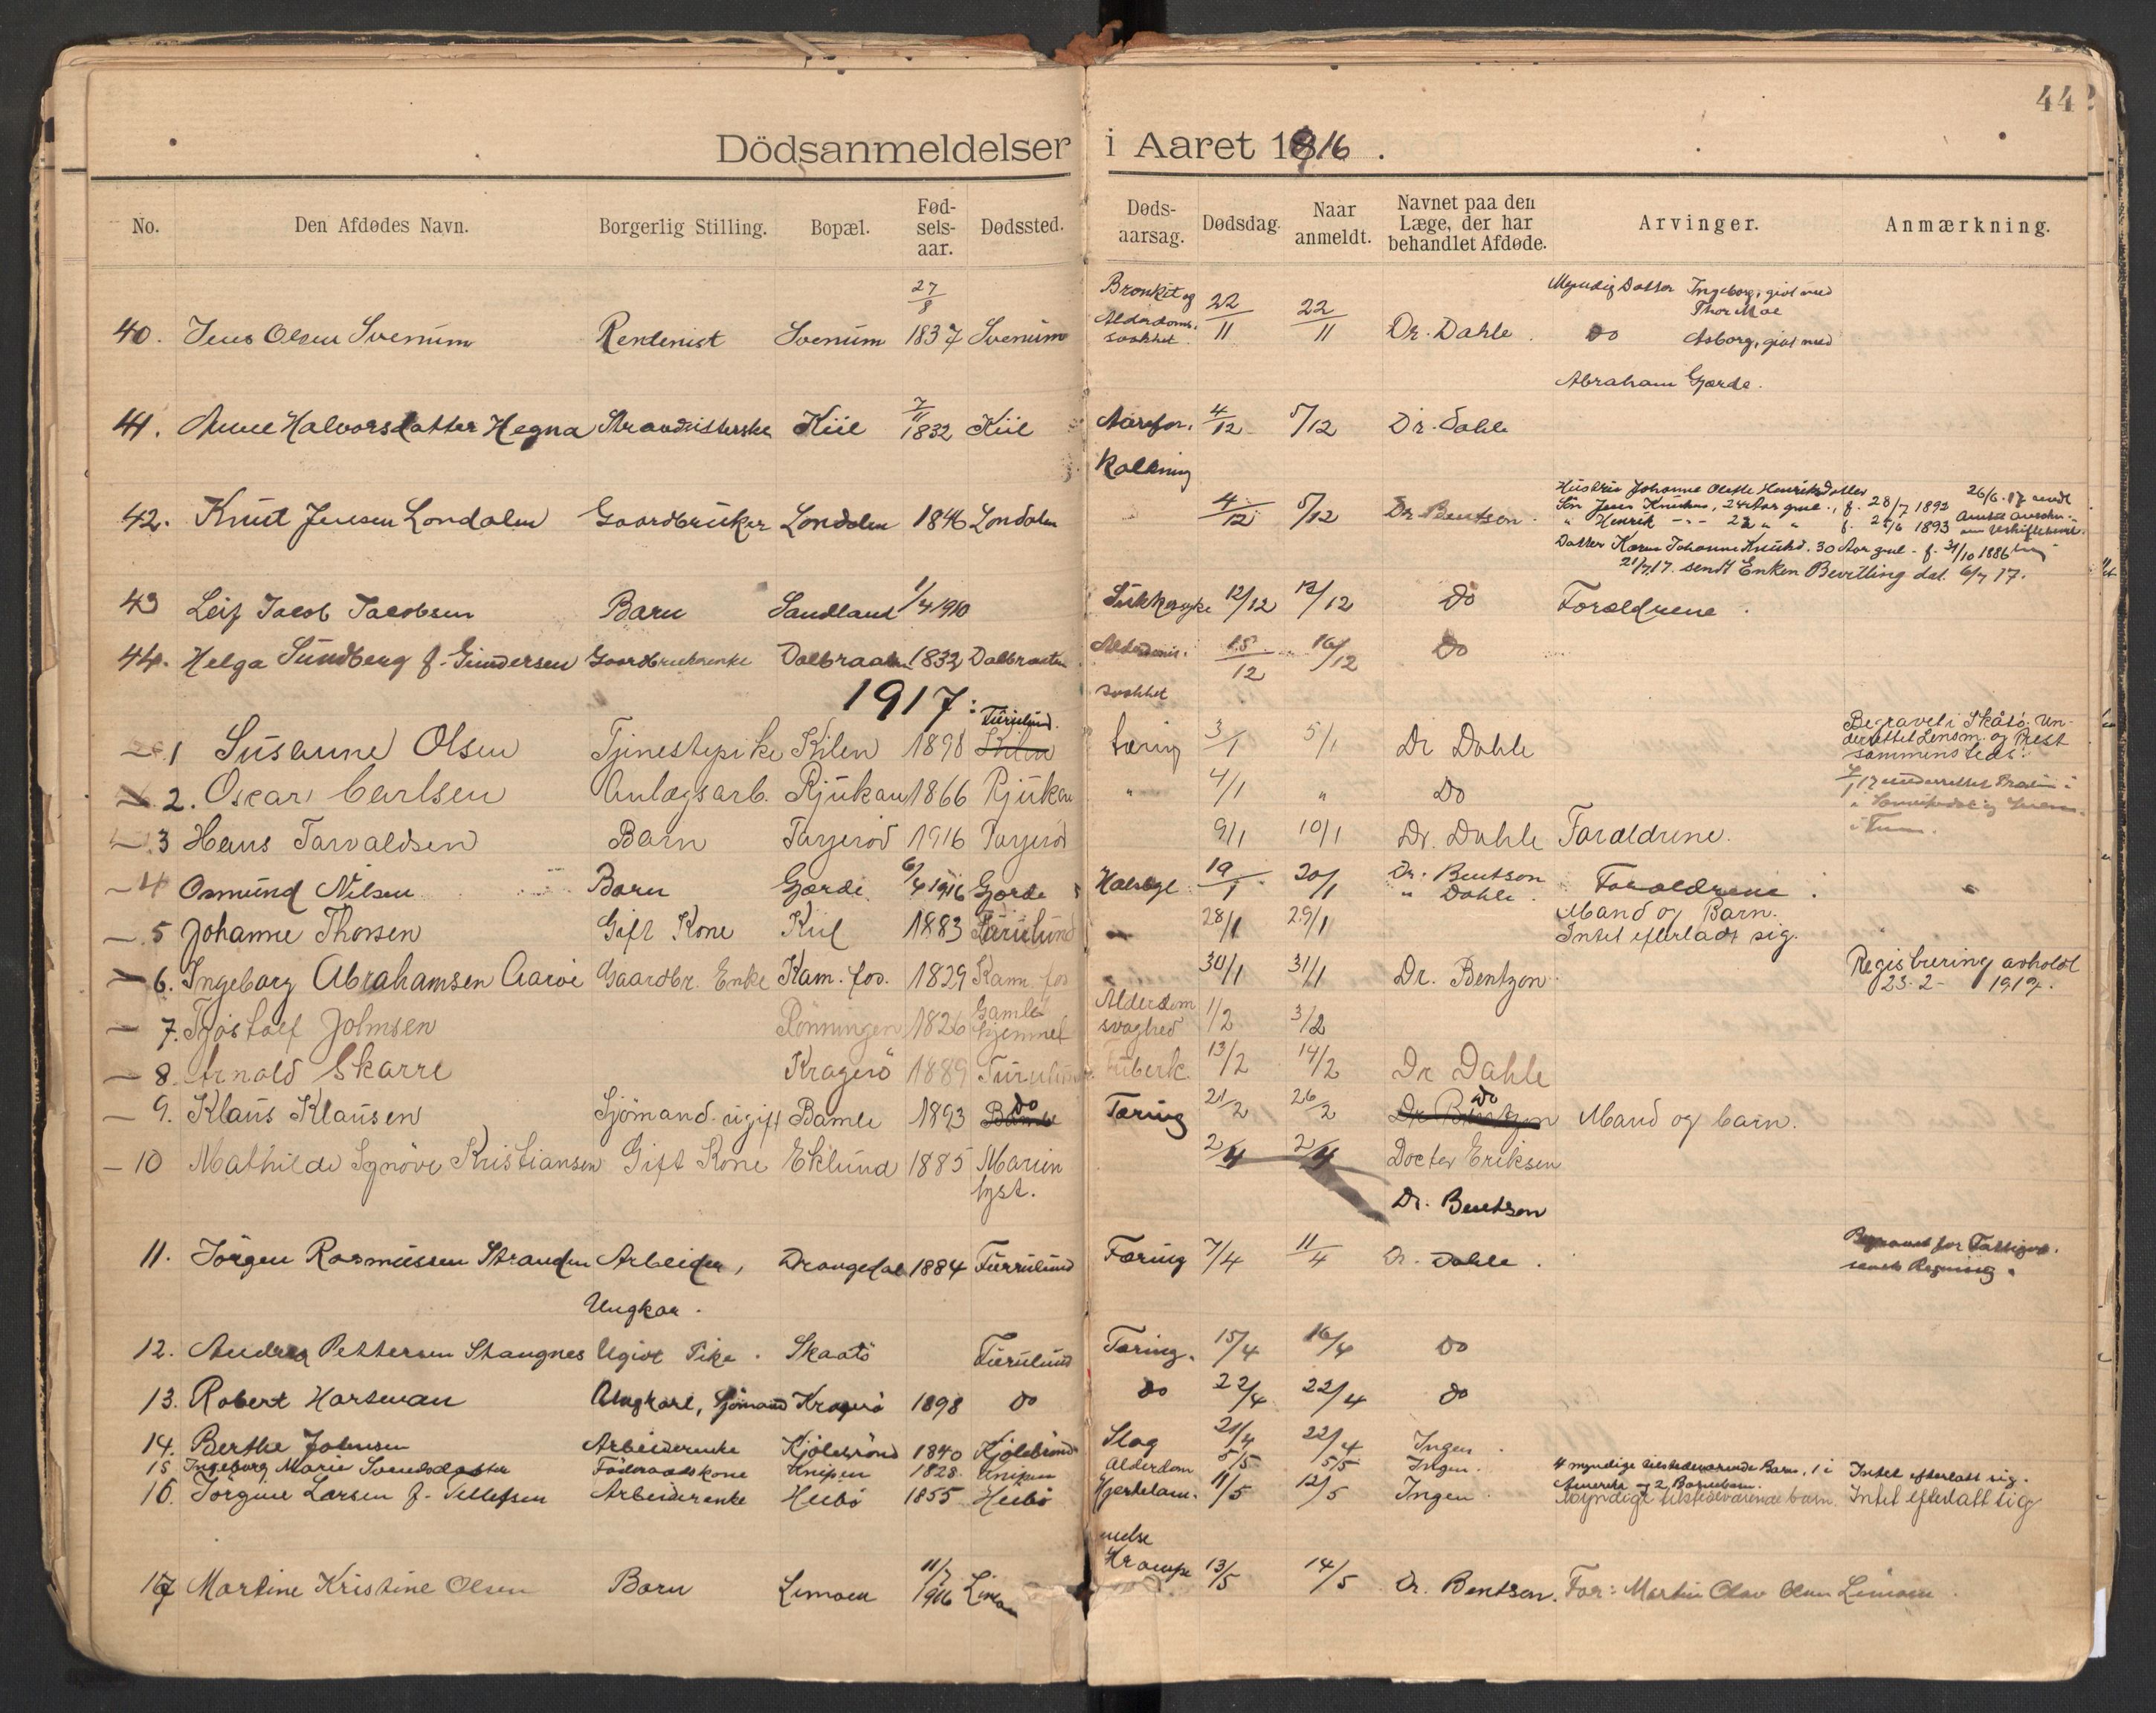 44
Dödsanmeldelser i Aaret 1916.
No. Den Afdødes Navn. Borgerlig Stilling. Bopæl. Fødselsaar. Dødssted. Dødsaarsag. Dødsdag. Naar anmeldt. Navnet paa den Læge, der har behandlet Afdøde. Arvinger. Anmærkning.
40. Jens Olsen Svenum Rentenist Svenum 27/8 1837 Svenum Bronkit og Alderdoms. svakhet. 22/11 22/11 Dr. Dahle. Myndig Datter Ingeborg, givt med Thor Moe
Do Asborg, givt med
Abraham Gjærde.
41. Anne Halvorsdatter Hegna Kiil 7/11 1832 Kiil Aarefor. kalkning 4/12 5/12 Dr. Dahle
42. Knut Jensen Londalen Gaardbruker Londalen 1846 Londalen 4/12 5/12 Dr. Bentson. Hustru Johanne Henriksdatter
Søn Jens Knutsen, 24 Aar gml., f. 28/7 1892 26/6.17 sendt
" Henrik - - - 23 " " f. 25/6 1893
Datter Karen Johanne Knutsd. 30 Aar gml. f. 31/10 1886
21/7.17. sendt Enken Bevilling dat. 6/7 17.
43 Leif Jacob Jacobsen Barn Sandland 1/4 1910 Sukkersyke 12/12 12/12 Do Forældrene.
44. Helga Sundberg f. Gundersen Gaardbrukerenke Dalbraaten 1832 Dalbraaten Alderdoms. svakhet 15/12 16/12 Do
1917:
1 Susanne Olsen Tjenestepike Kilen 1898 Furulund. Kilen Tæring 3/1 5/1 Dr Dahle Begravet i Skåtø. Underrettet Lensm. og Prest sammesteds.
2. Oscar Carlsen Anlægsarb. Rjukan 1866 Rjukan " 4/1 " Do
3 Hans Tarvaldsen Barn Tarjerød 1916 Tarjerød 9/1 10/1 Dr. Dahle Foraldrene.
4 Osmund Nilsen Barn Gærde 6/4 1916 Gærde Halsbyl 19/1 20/1 Dr. Bentson
" Dahle. Forældrene.
5 Johanne Thorsen Gift Kone Kiil 1883 Furulund 28/1 29/1 Mand og Barn.
Intet efterladt sig.
6. Ingeborg Abrahamsen Aarøe Gaardbr. Enke Kam. fos. 1829 Kam. fos 30/1 31/1 Dr. Bentzon. Registrering avholdt
23-2- 1917.
7. Tjøstolf Johnsen Rønningen 1826 Gamlehjemmet Alderdom svaghed 1/2 3/2
8. Arnold Skarre Kragerø 1889 Furulund Tuberk. 13/2 14/2 Dr Dahle
9. Klaus Klausen Sjømand. ugift Bamle 1893 Do Bamle Tæring 21/2 26/2 Do Dr Bentzon Mand og barn.
10 Mathilde Synøve Kristiansen Gift Kone Eklund 1885 Marienlyst. 2/4 2/4 Doctor Eriksen
Dr. Bentson
11. Jörgen Rasmussen Stranden Arbeider, Ungkar. Drangedal 1884 Furrulund Tæring 7/4 11/4 Dr. Dahle. Begravet for Fattigvæsenets Regning.
12. Andrea Pettersen Stangnes Ugivt Pike. Skaatö Furulund Tæring. 15/4 16/4 Do
13. Robert Hartman Ungkarl, Sjömand Kragerö 1898 Do Do 22/4 22/4 Do
14. Berthe Johnsen Arbeiderenke Kjölebrönd 1840 Kjölebrönd Slag 21/4 22/4 Ingen.
15 Ingeborg Marie Svendsdatter Föderaadskone Knipen 1828. Knipen Alderdom 5/5 5/5 Ingen. 4 myndige tilstedeværende Barn, 1 i Amerika og 2 Barnebarn. Intet efterlatt sig.
16. Jörgine Larsen f. Tellefsen Arbeiderenke Heibö 1855 Heibö Hjertelam. melse 11/5 12/5 Ingen Myndige tilstedeværende barn. Intet efterlatt sig
17 Martine Kristine Olsen Barn Limoen 11/7 1916 Krampe 13/5 14/5 Dr. Bentson. Far: Martin Olav Olsen Limoen.